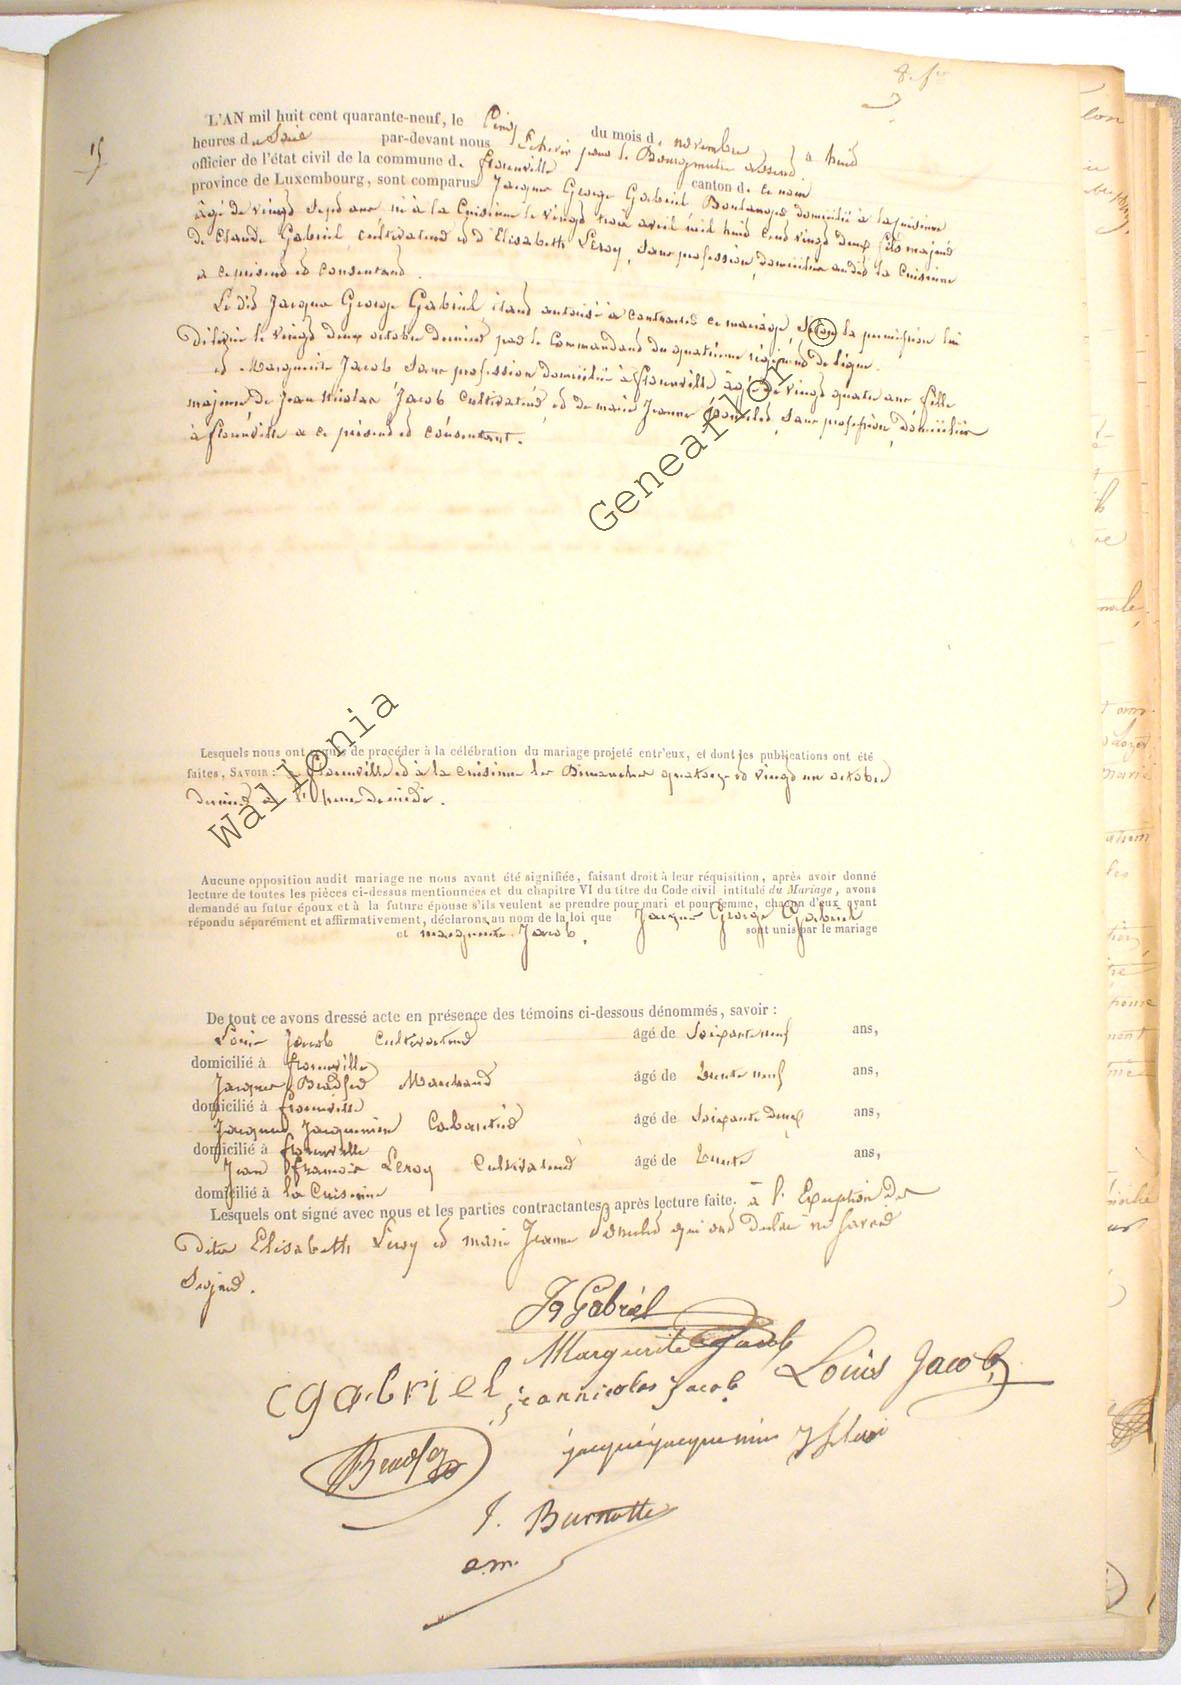 15
L'AN mil huit cent quarante-neuf, le Cinq du mois de novembre à huit
heures du Soir par-devant nous Echevin pour le Bourgmestre absent
officier de l'état civil de la commune de florenville canton de ce nom
province de Luxembourg, sont comparus Jacques George Gabriel Boulanger domicilié à lacuisine
âgé de vingt Sept ans né à la Cuisine le vingt trois avril mil huit cent vingt deux fils majeur
de Claude Gabriel cultivateur et d'Elisabeth Leroy, Sans profession domiciliés audit la Cuisine
a ce présent et consentant.
Le dit Jacques George Gabriel étant autorisé à contracter ce mariage Selon la permission lui
délivrée le vingt deux octobre dernier par le Commandant du quatrième régiment de ligne.
et Marguerite Jacob Sans profession domiciliée à florenville âgée de vingt quatre ans fille
majeure de Jean Nicolas Jacob Cultivateur et de marie Jeanne Sans profession domiciliés
à florenville a ce présent et consentant.
Lesquels nous ont requis de procéder à la célébration du mariage projeté entr'eux, et dont les publications ont été
faites, SAVOIR : à florenville et à la cuisine les Dimanches quatorze et vingt un octobre
dernier à l'heure de midi.
Aucune opposition audit mariage ne nous ayant été signifiée, faisant droit à leur réquisition, après avoir donné
lecture de toutes les pièces ci-dessus mentionnées et du chapitre VI du titre du Code civil intitulé du Mariage, avons
demandé au futur époux et à la future épouse s'ils veulent se prendre pour mari et pour femme, chacun d'eux ayant
répondu séparément et affirmativement, déclarons au nom de la loi que Jacques George Gabriel
et marguerite Jacob, sont unis par le mariage
De tout ce avons dressé acte en présence des témoins ci-dessous dénommés, savoir :
Louis Jacob Cultivateur âgé de Soixante neuf ans,
domicilié à florenville
Jacques Marchand âgé de trente neuf ans,
domicilié à florenville
Jacques Jacquemin Cabaretier âgé de Soixante deux ans,
domicilié à florenville
Jean françois Leroy Cultivateur âgé de trente ans,
domicilié à la Cuisine
Lesquels ont signé avec nous et les parties contractantes après lecture faite. à l'Exception des
dites Elisabeth Leroy et marie Jeanne qui ont déclaré ne Savoir
Signer.
JG Gabriel
Marguerite Jacob
cgabriel jeannicolas jacob Louis Jacob
jacquejacquemin
J. Burnotte
Wallonia Geneaflor ©